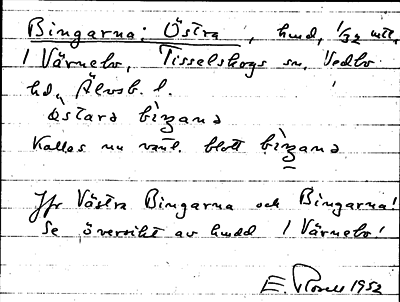 Bingarna: Östra, hmd, 1/32 mtl,
i Värnebo, Tisselskogs sn, Vedbo
hd, Älvsb. l.
östara bìŋana
Kallas nu vanl. blott bìŋana
Jfr Västra Bingarna och Bingarna!
Se översikt av hmdd i Värnebo!
E. 1952